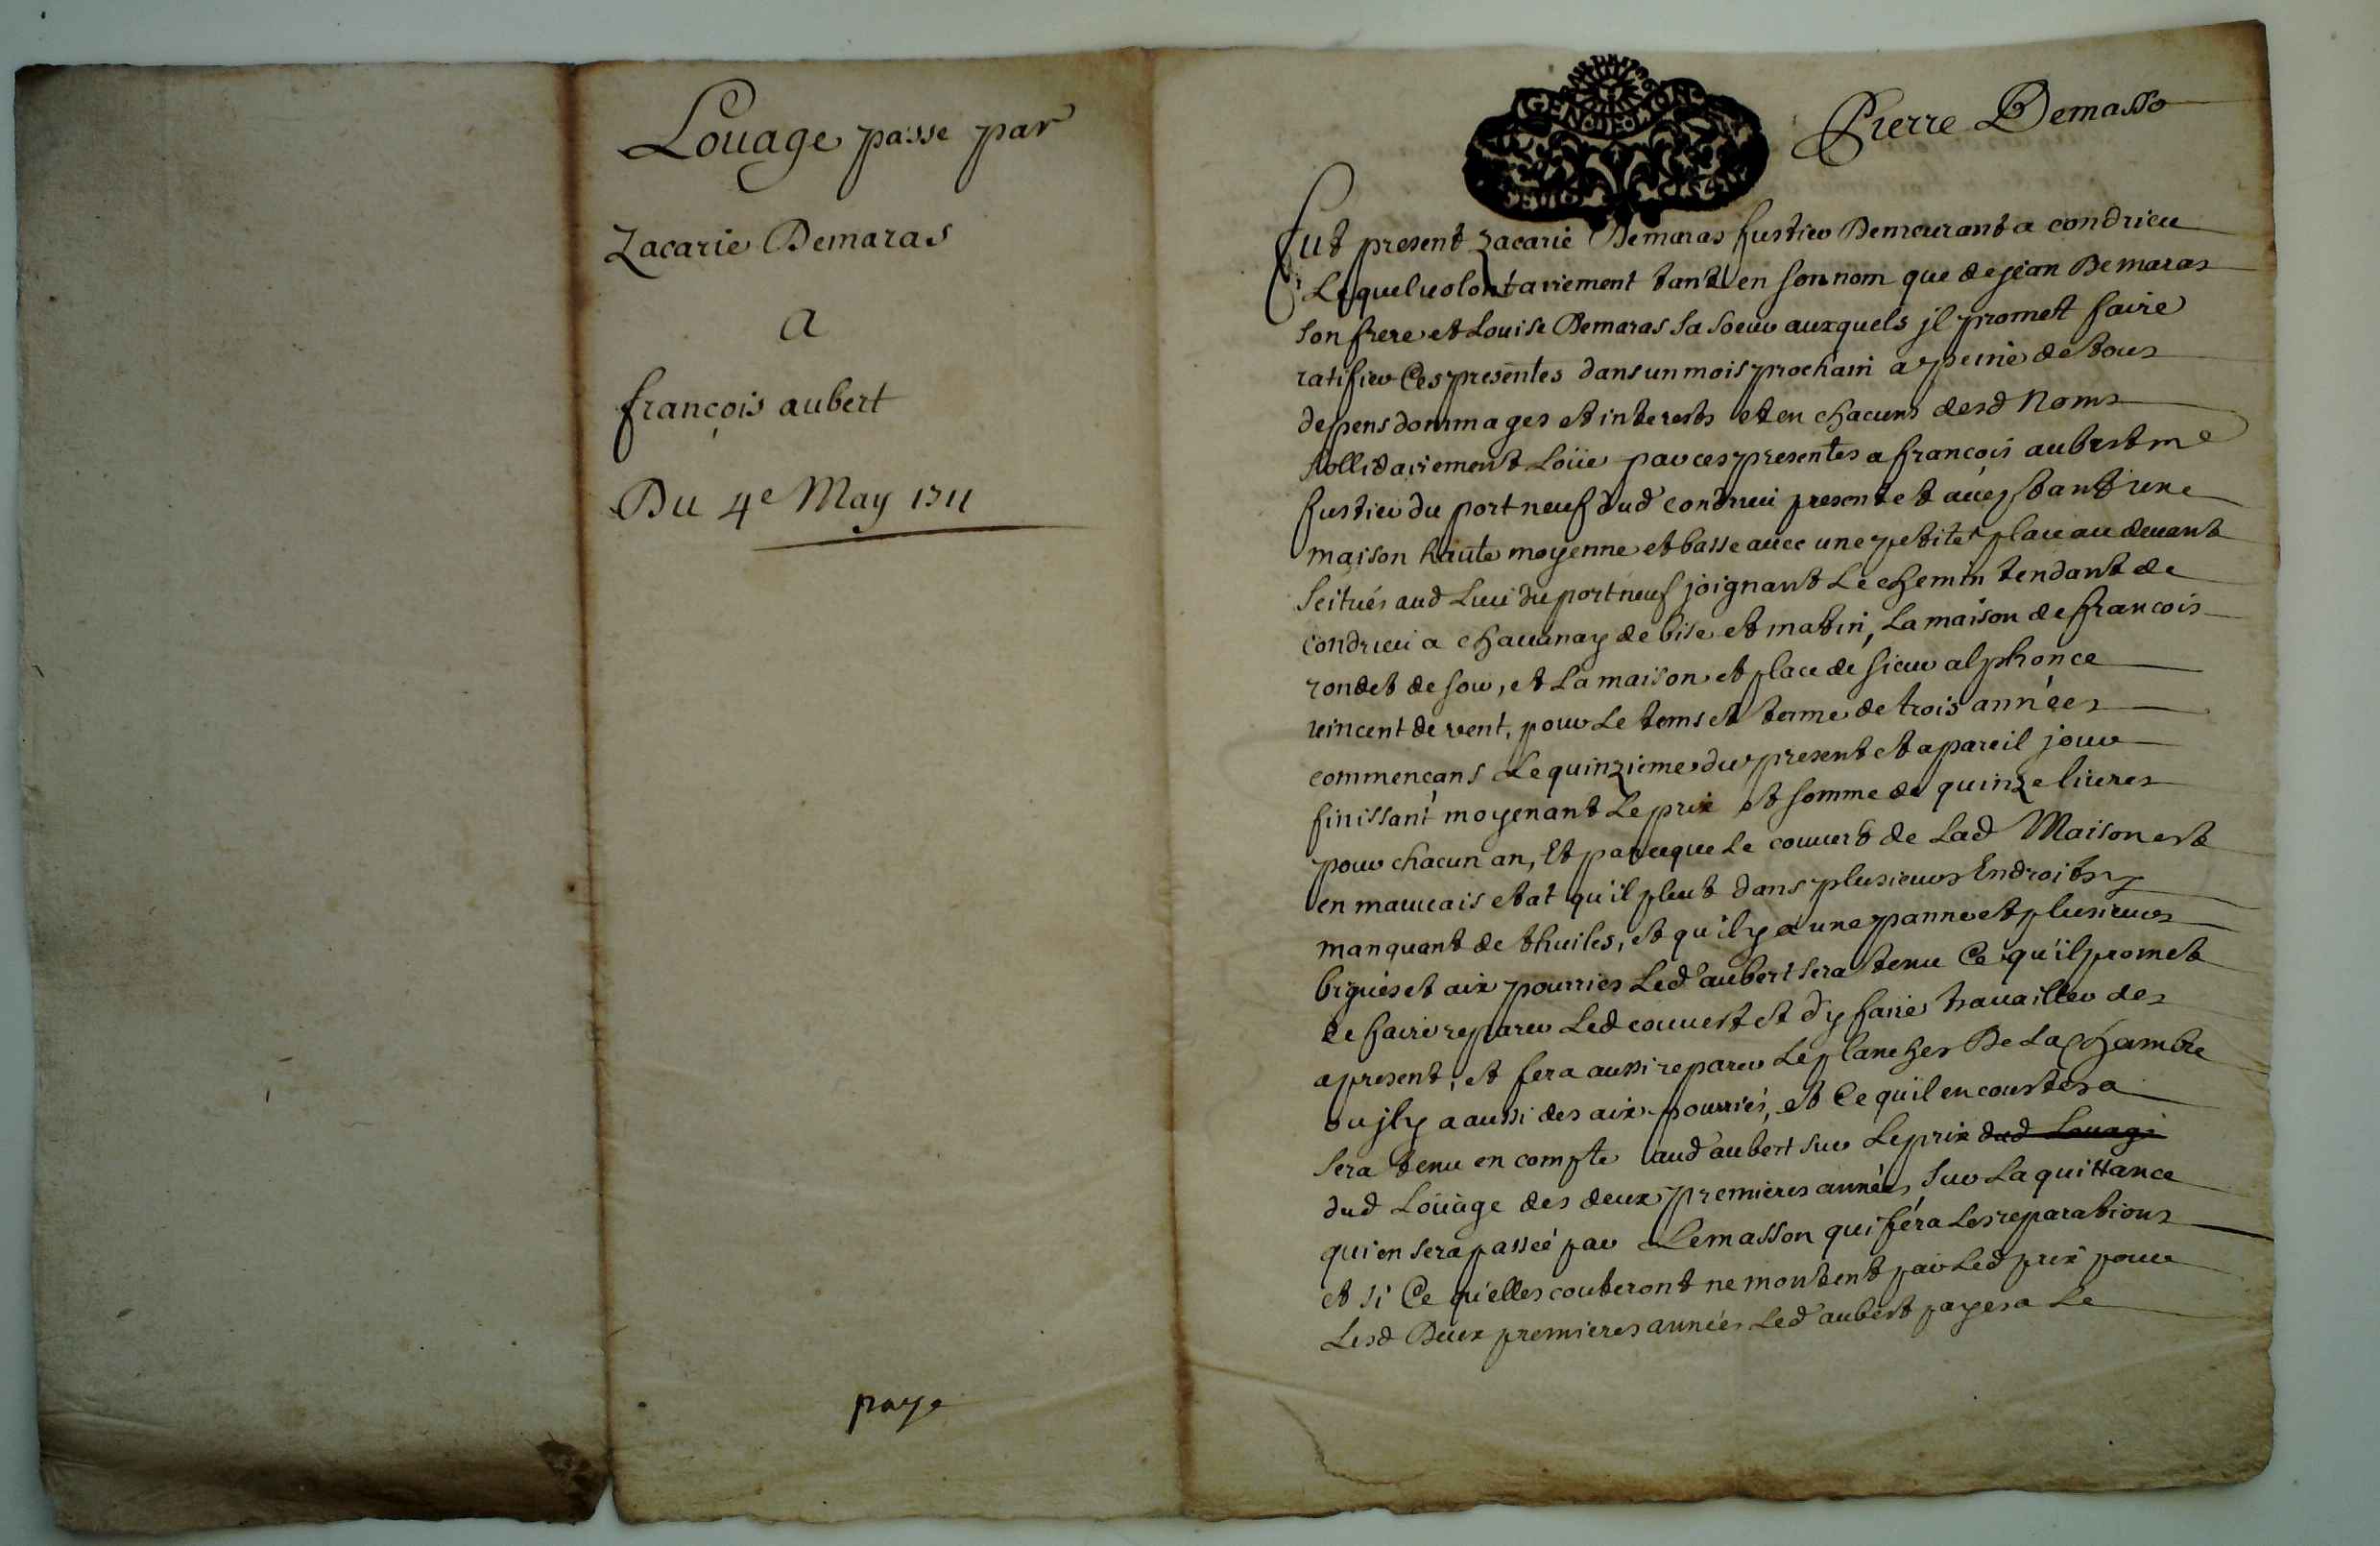 Louage passe par
Zacarie Demaras
A
françois aubert
Du 4e May 1711
paye
GEN DE LYON
Pierre Demasso
fut present zacarie Demaras fustier Demeurant a condrieu
Lequel uolontairement tant en son nom que de jean Demaras
son frere et Louise Demaras sa soeur auxquels jl promet faire
ratifier Ces presentes dans un mois prochain a peine de tous
depens dommages et interests et en chacuns desd Noms
sollidairement Loüe par ces presentes a francois aubert me
fustier du port neuf dud condrieu present et aceptant une
maison haute moyenne et basse auec une petite place au deuant
scitués aud Lieu du port neuf joignant Le chemin tendant de
condrieu a chauanay de bise et matin, La maison de francois
rondet de soir, et La maison et place de sieur alphonce
uincent de vent, pour Le tems et terme de trois années
commençans Le quinzieme du present et a pareil jour
finissant moyenant Le prix et somme de quinze liures
pour chacun an, Et parceque Le couuert de Lad Maison est
en mauuais etat qu'il pleut dans plusieurs Endroits y
manquant de thuiles, et qu'il y a une panne et plusieurs
bigues et aix pourries Led aubert sera tenu Ce qu'il promet
de faire reparer Led couuert et d'y faire trauailler des
apresent, et fera aussi reparer Le plancher De La Chambre
ou jl y a aussi des aix pourriés, et Ce qu'il en coustera
sera tenu en compte aud aubert sur Le prix dud Louage
dud Loüage des deux premieres années, sur La quittance
qui en sera passeé par Lemasson qui féra Les reparations
et si Ce qu'elles couteront ne montent pas Led prix pour
Lesd Deux premieres années Led aubert payera Le